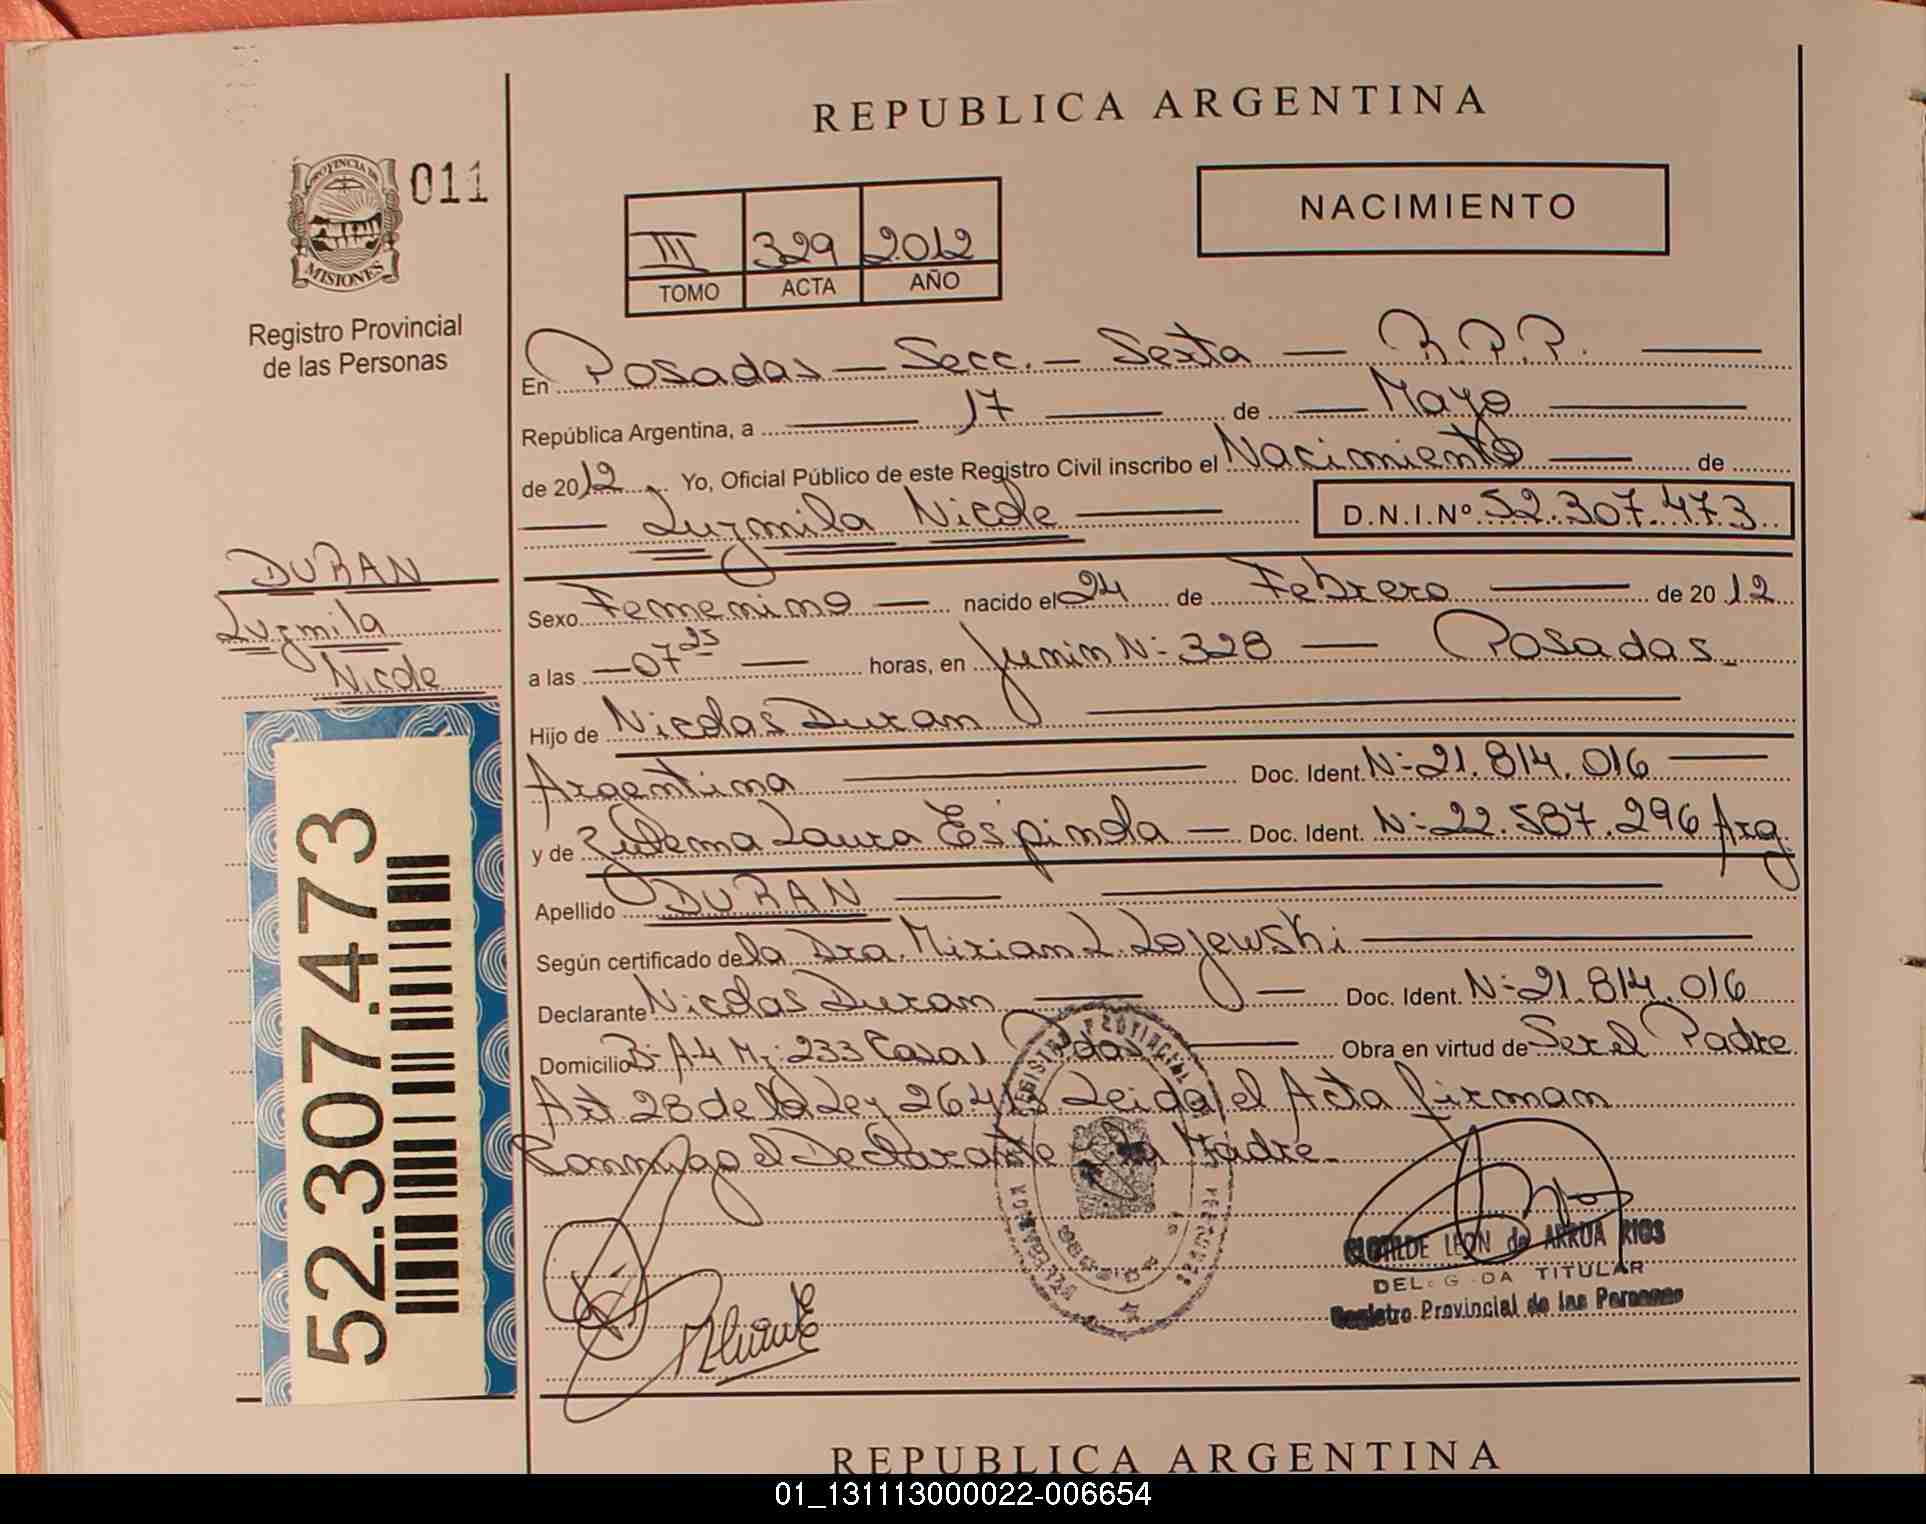 REPUBLICA ARGENTINA
PROVINCIA DE
MISIONES
011
Registro Provincial
de las Personas
III 329 2.012
TOMO ACTA AÑO
NACIMIENTO
En Posadas — Secc. — Sexta — R.P.P. —
República Argentina, a — 17 — de — Mayo —
de 2012 Yo, Oficial Público de este Registro Civil inscribo el Nacimiento — de
— Luzmila Nicole — D.N.I.Nº 52.307.473
DURAN
Luzmila
Nicole
Sexo Femenino — nacido el 24 de Febrero — de 2012
a las — 07 25 — horas, en Junin N: 328 — Posadas.
Hijo de Nicolas Duran —
Argentina — Doc. Ident. N: 21.814.016 —
y de Zulema Laura Espinola — Doc. Ident. N: 22.587.296 Arg.
Apellido DURAN —
Según certificado de la Dra. Mirian L. Lojewski —
Declarante Nicolas Duran — Doc. Ident. N: 21.814.016
Domicilio B: A-4 Mz: 233 Casa 1 Pdas — Obra en virtud de Ser el Padre
Art 28 de la Ley 26413 Leida el Acta firman
Conmigo el Declarante y la Madre.
52.307.473
CLOTILDE LEON de ARRUA RIOS
DELEGADA TITULAR
Registro Provincial de las Personas
REPUBLICA ARGENTINA
01_131113000022-006654